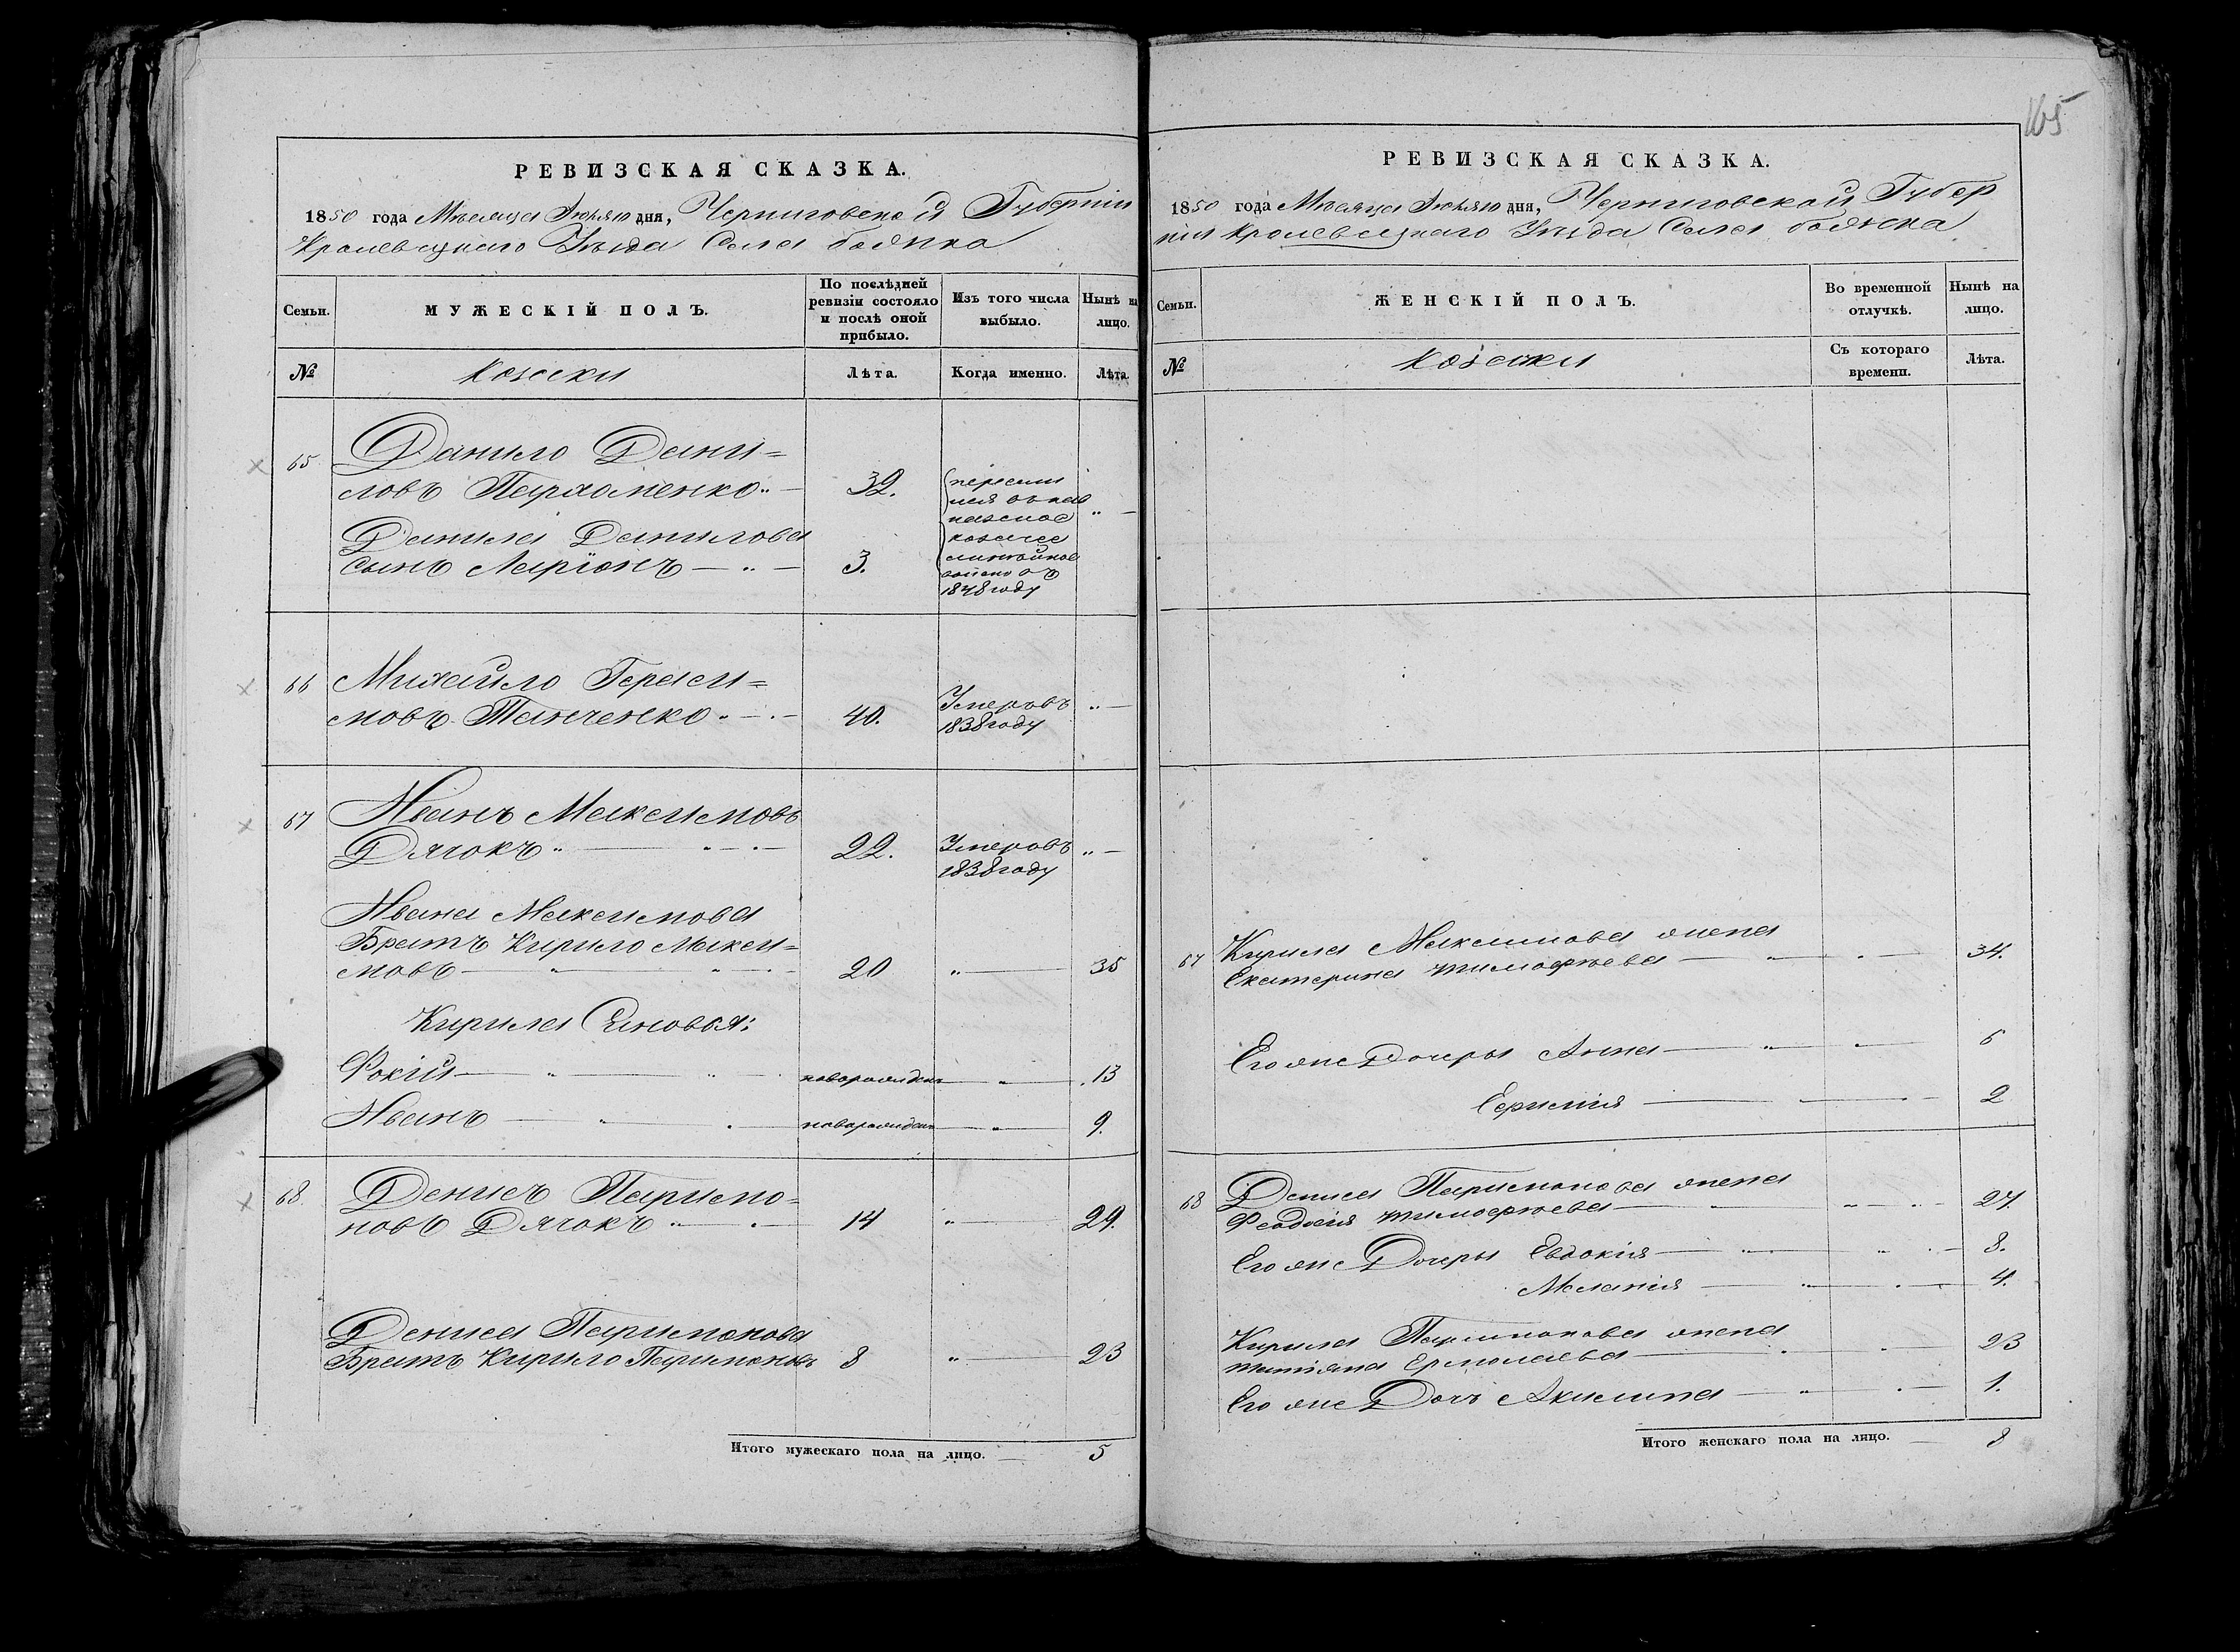 165
РЕВИЗСКАЯ СКАЗКА.
1850 года Месяца Июля 10 дня, Черниговской Губерніи
Кролевецкаго Уѣзда Села
Семьи.
МУЖЕСКІЙ ПОЛЪ.
По послѣдней ревизіи состояло и послѣ оной прибыло.
Изъ того числа выбыло.
Нынѣ на лицо.
№
Козаки
Лѣта.
Когда именно.
Лѣта.
65
Данило Дани=
ловъ Пархоменко 32.
Данила Данилова
сынъ Ларіонъ 3.
казачее
линейное
войско въ
1848 году
66
Михайло Гераси=
мовъ Танченко 40. Умеръ въ
1838 году
67
Иванъ Максимовъ
Дячокъ 22. Умеръ въ
1838 году
Ивана Максимова
Братъ Кирило Макси=
мовъ 20 35
Кирила Сыновья:
Фокій новорожденъ 13
Иванъ новорожденъ 9.
68
Денисъ Паримо=
новъ Дячокъ 14 29.
Дениса Паримонова
Братъ Кирило Паримоновъ 8 23
Итого мужескаго пола на лицо. 5
РЕВИЗСКАЯ СКАЗКА.
1850 года Месяца Июля 10 дня, Черниговской Губер
ніи Кролевецкаго Уѣзда Села
Семьи.
ЖЕНСКІЙ ПОЛЪ.
Во временной отлучкѣ.
Нынѣ на лицо.
№
Козачки
Съ котораго времени.
Лѣта.
67
Кирила Максимова жена
Екатерина Тимофѣева 34.
Его же Дочеры Анна 6
Ефимія 2
68
Дениса Паримонова жена
Феодосія Тимофѣева 27.
Его же Дочеры Евдокія 8.
Меланія 4.
Кирила Паримонова жена
Татіяна Ермолаева 23
Его же Дочь Акилина 1.
Итого женскаго пола на лицо. 8